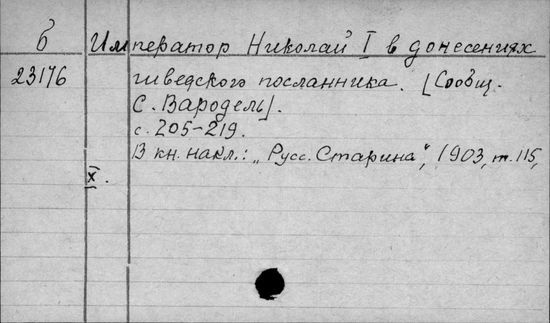 б Император Николай I в донесениях
23176 шведского посланника. [Сообщ.
С. Вародель].
с. 205-219.
В кн. накл.: „Русс. Старина", 1903, т. 115,
X.